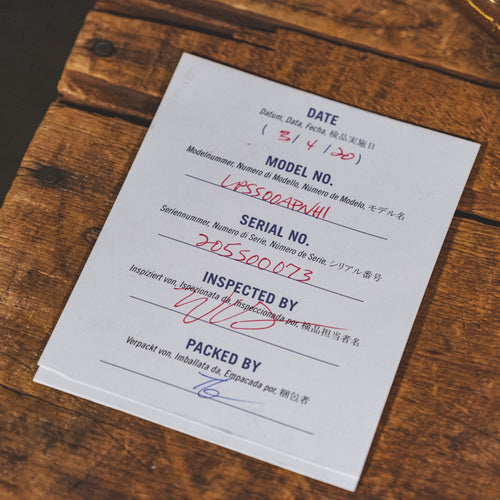 DATE
Datum, Data, Fecha, 検品実施日
( 3/ 4 /20)
MODEL NO.
Modelnummer, Numero di Modello, Número de Modelo, モデル名
LPSS00APNH1
SERIAL NO.
Seriennummer, Numero di Serie, Número de Serie, シリアル番号
205500073
INSPECTED BY
Inspiziert von, Isperionata da, Inspeccionada por, 検品担当者名
PACKED BY
Verpackt von, Imballata da, Empacada por, 梱包者